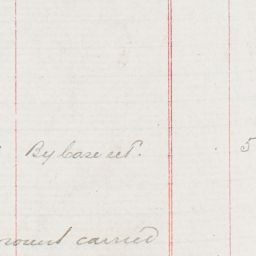 By Case ret. 5
mount carried